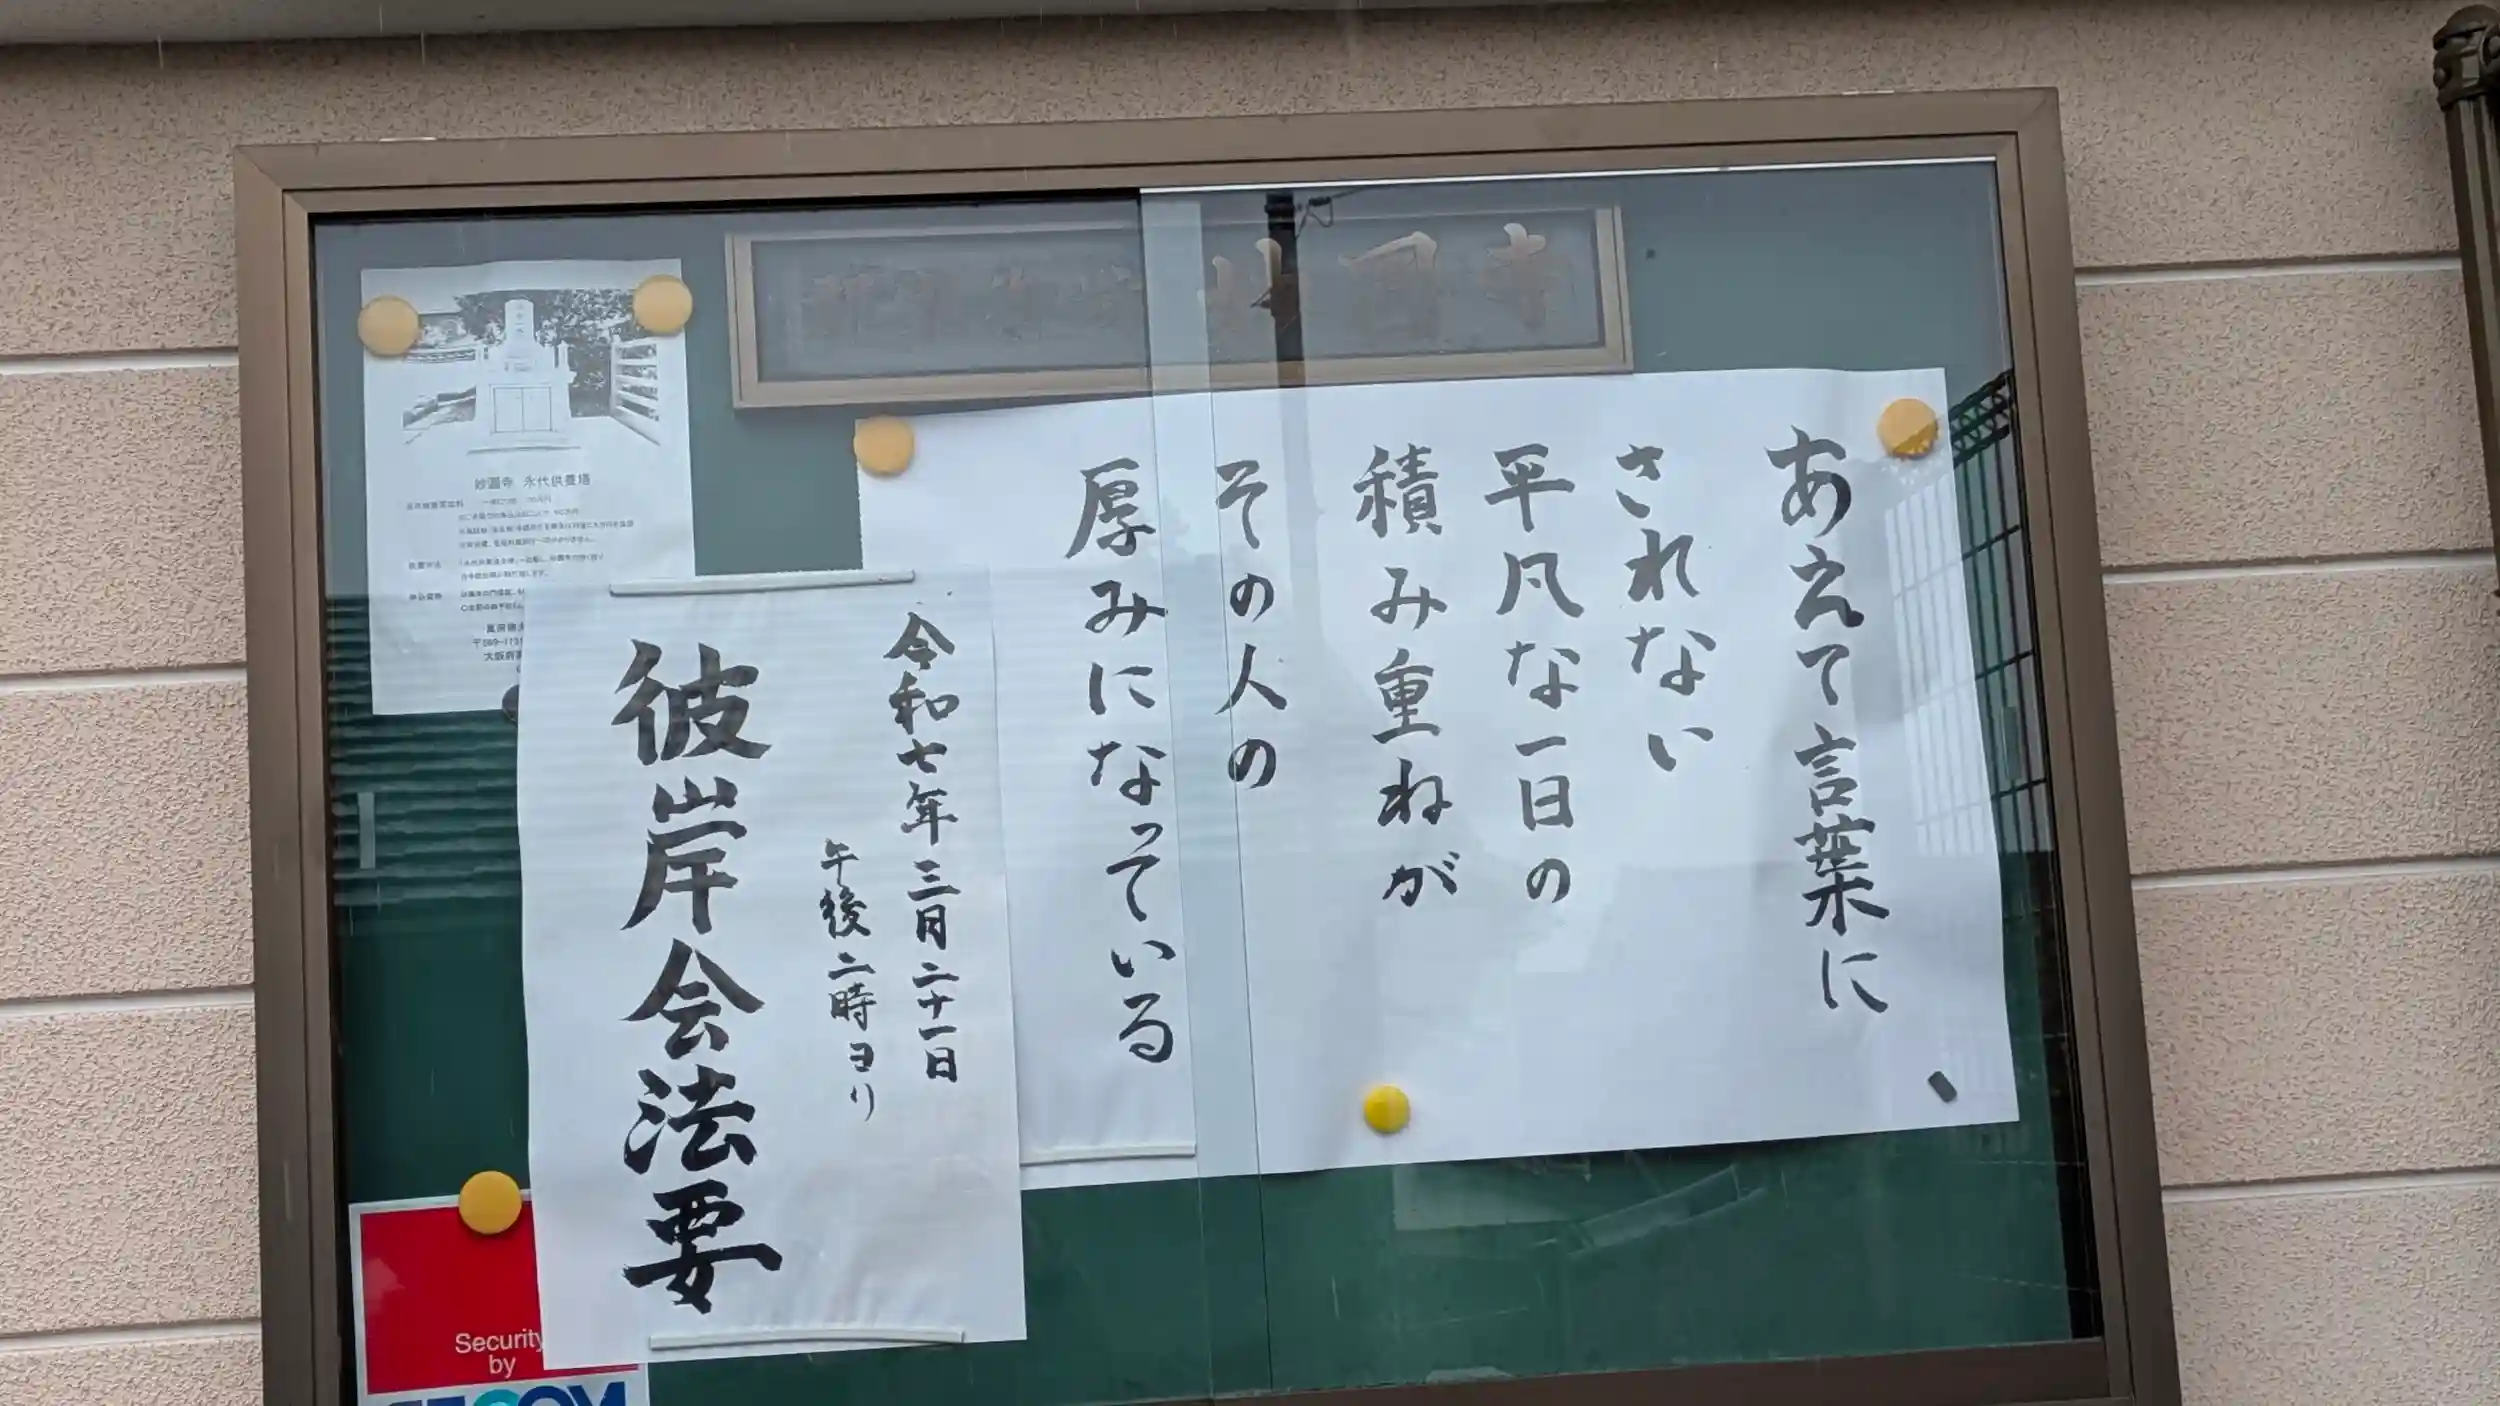 あえて言葉に
されない
平凡な一日の
積み重ねが
その人の
厚みになっている
令和七年三月二十一日
午後二時ヨリ
彼岸会法要
妙圓寺 永代供養塔
Security
by
SECOM